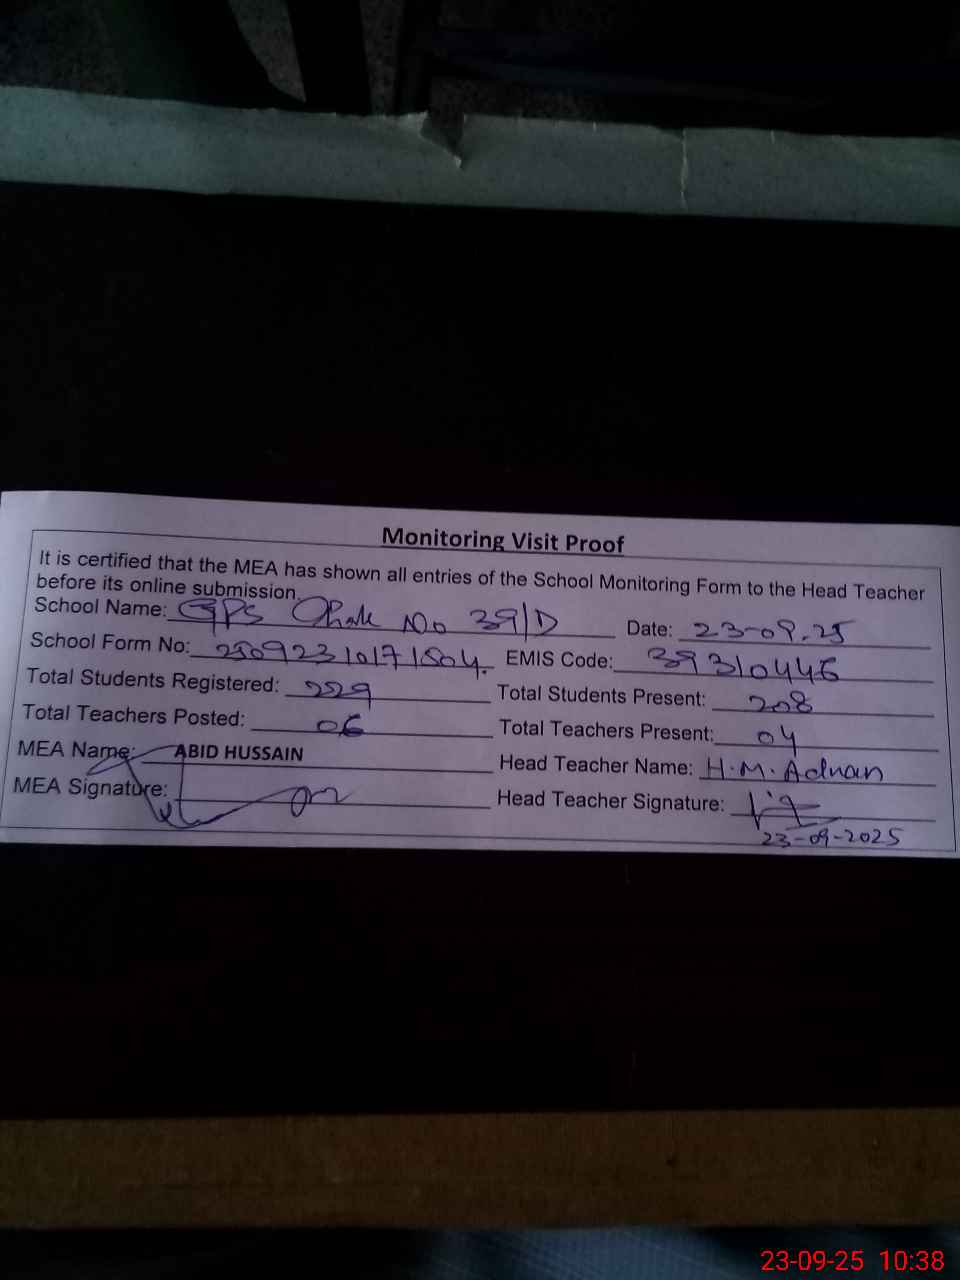 Monitoring Visit Proof
It is certified that the MEA has shown all entries of the School Monitoring Form to the Head Teacher
before its online submission.
School Name: GPS Chak No 39/D Date: 23-09.25
School Form No: 25092310171504. EMIS Code: 39310446
Total Students Registered: 229 Total Students Present: 208
Total Teachers Posted: 06 Total Teachers Present: 04
MEA Name: ABID HUSSAIN Head Teacher Name: H.M. Adnan
MEA Signature: Head Teacher Signature:
23-09-2025
23-09-25 10:38